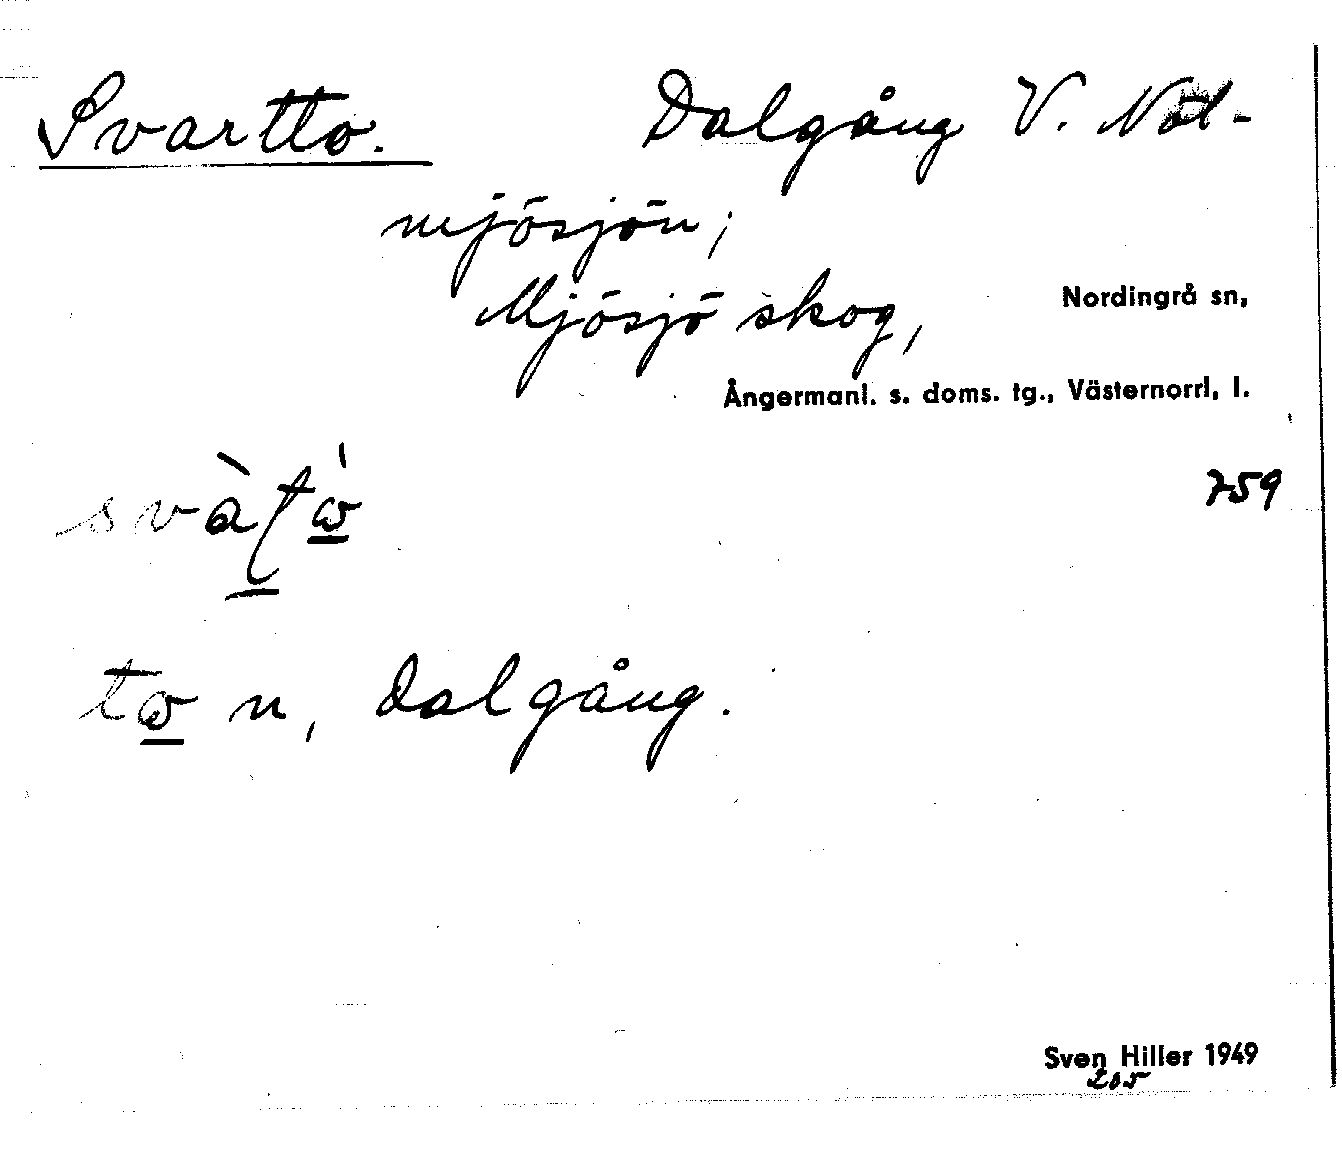 Svartto. Dalgång V. Nöt-
mjösjön;
Mjösjö skog,
Nordingrå sn,
Ångermanl. s. doms. tg., Västernorrl. l.
759
n, dalgång.
Sven Hiller 1949
205